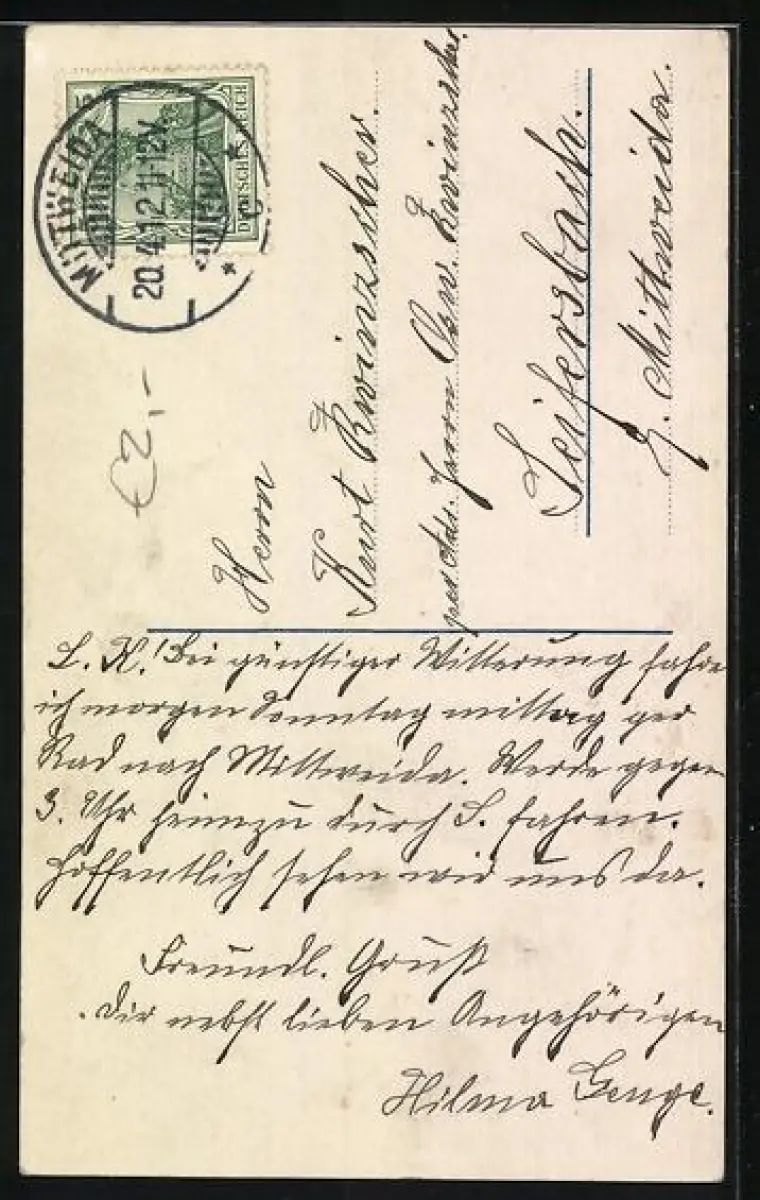 MITTWEIDA
20.4.12.11-12V.
DEUTSCHES REICH
€2,-
Herrn
Kurt Zwinzscher.
pred. Adr. Herrn Osw. Zwinzscher.
Seifersbach.
b. Mittweida.
L. K.! Bei günstiger Witterung fahre
ich morgen Sonntag mittag per
Rad nach Mittweida. Werde gegen
3. Uhr heimzu durch S. fahren.
Hoffentlich sehen wir uns da.
Freundl. Gruß
Dir nebst lieben Angehörigen
Hilma